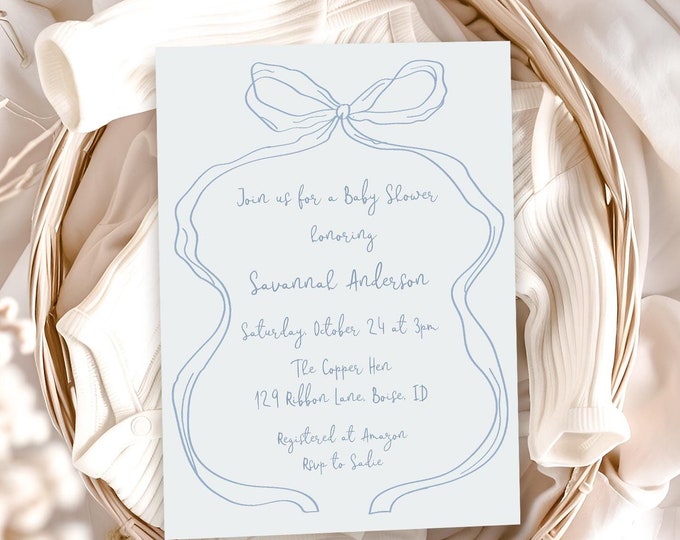 Join us for a Baby Shower
honoring
Savannah Anderson
Saturday, October 24 at 3pm
The Copper Hen
129 Ribbon Lane, Boise, ID
Registered at Amazon
Rsvp to Sadie